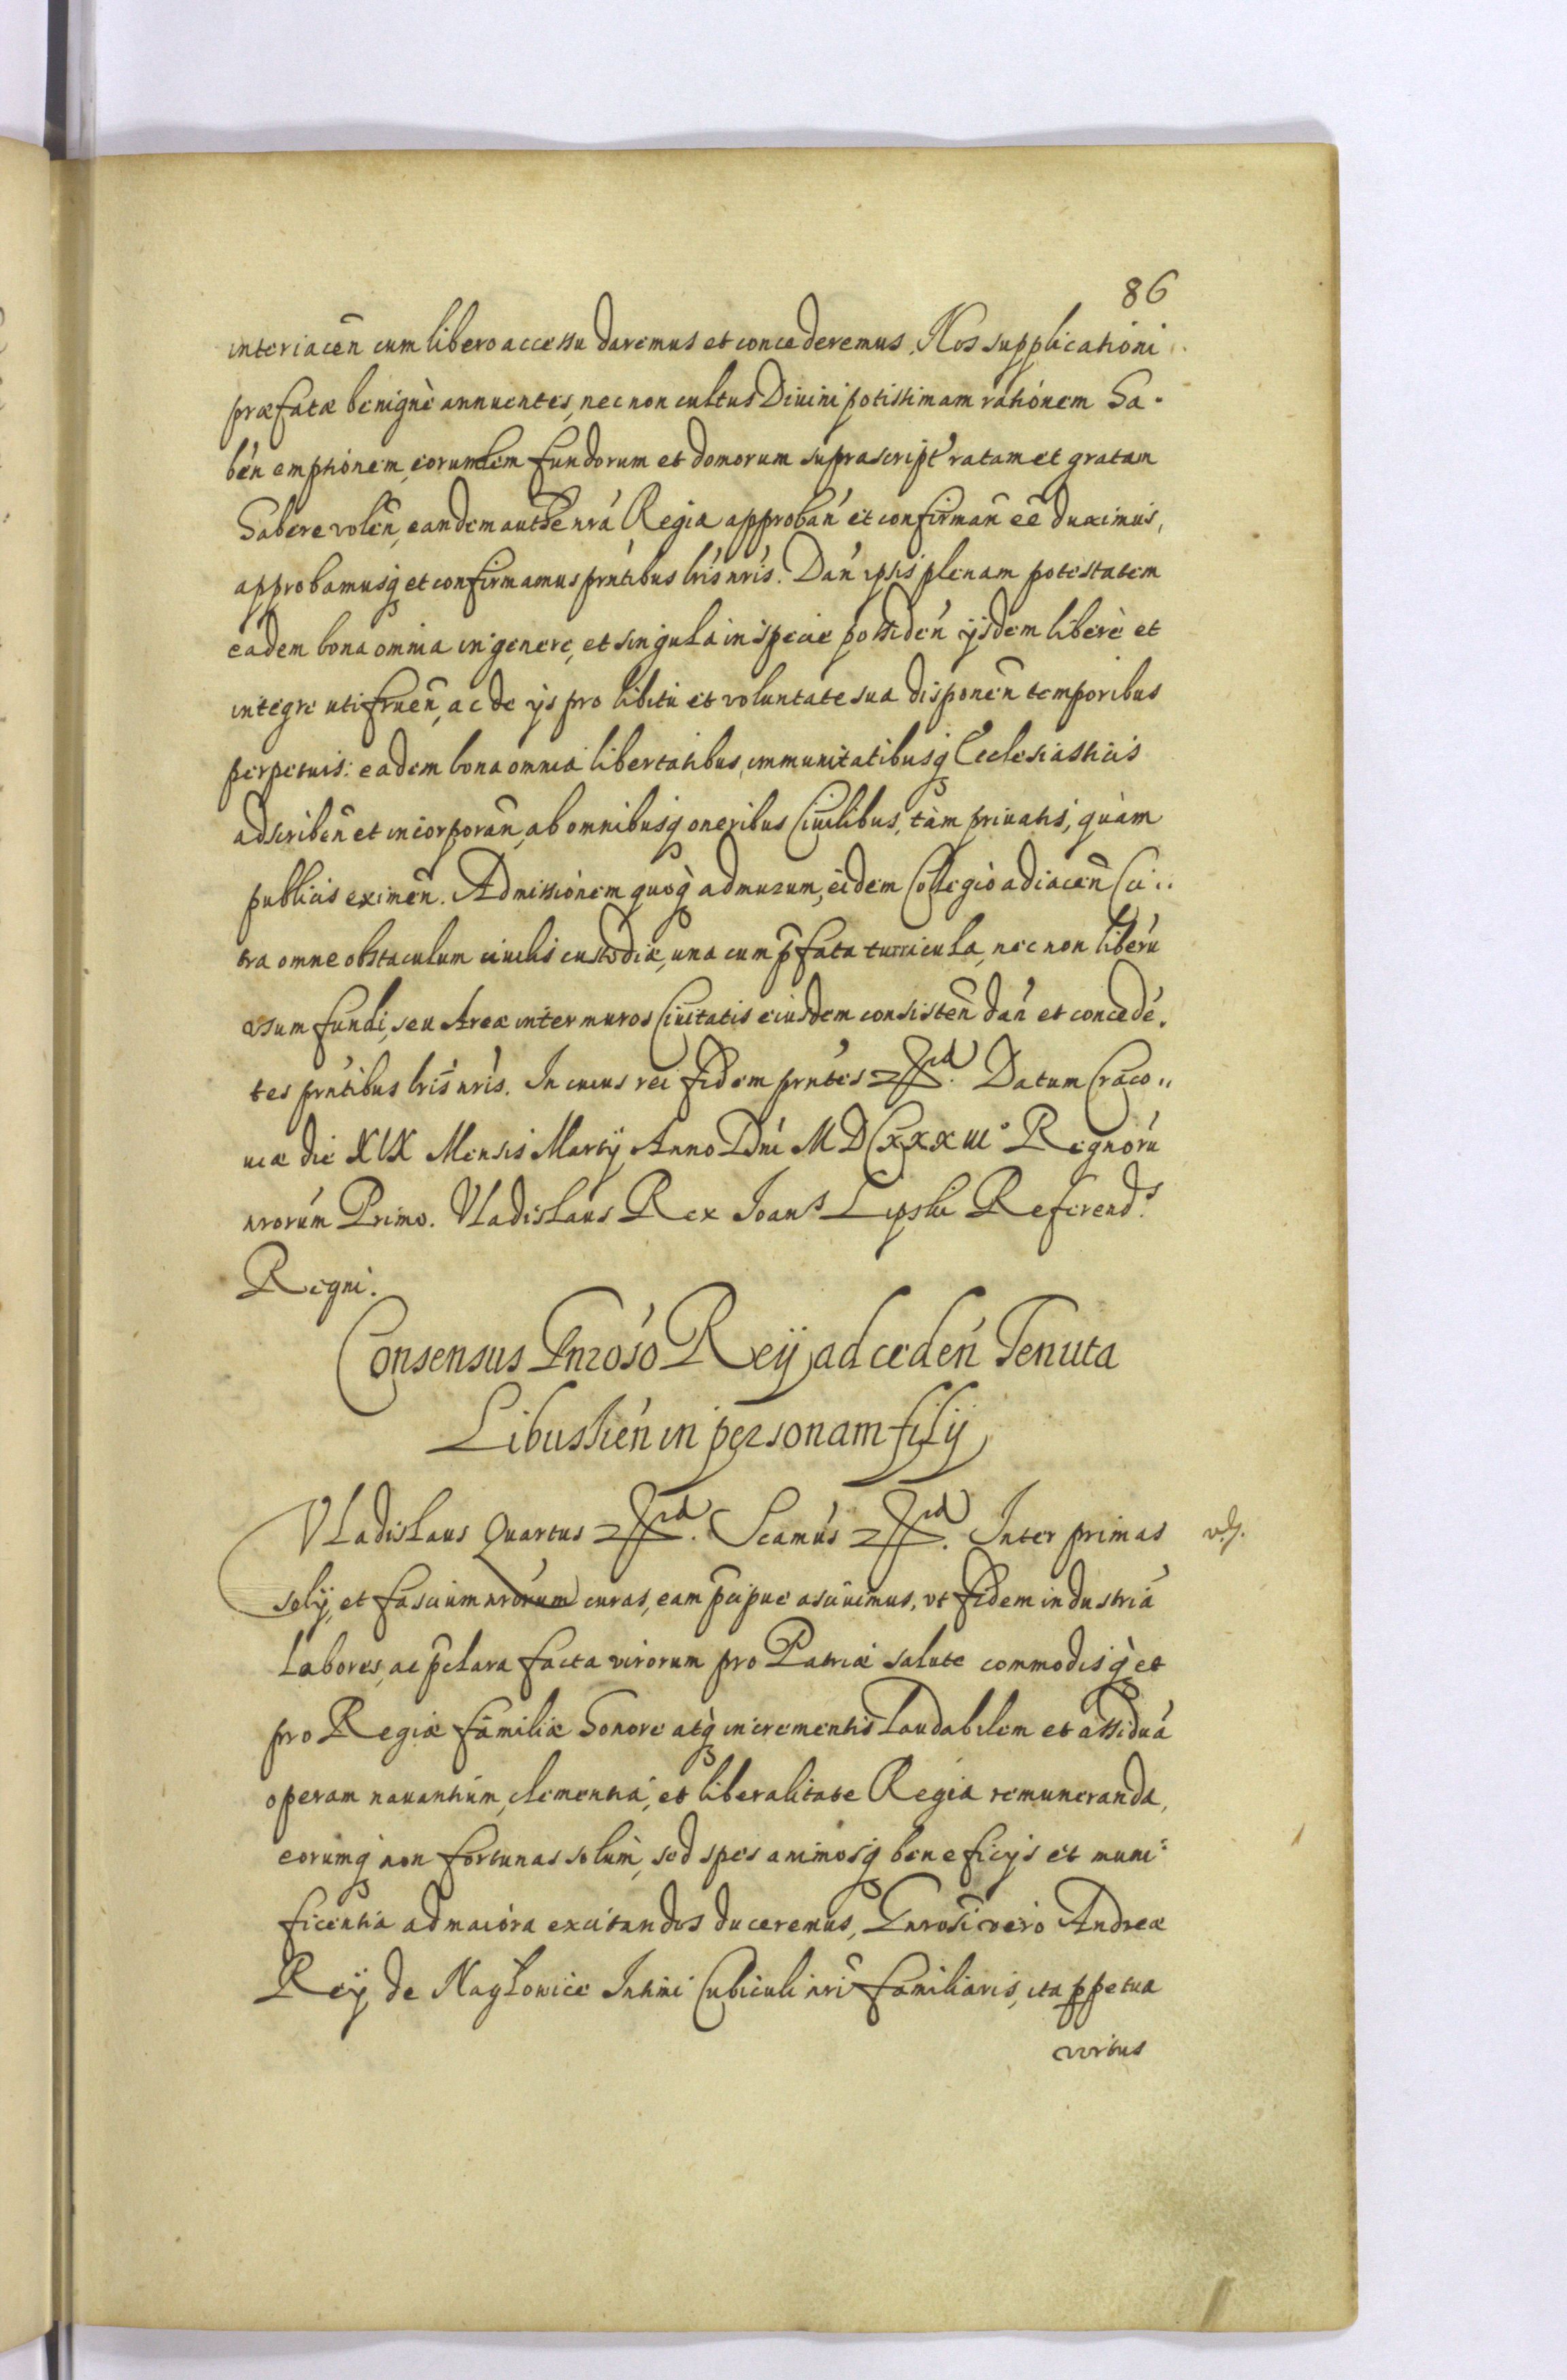 86
interiacen̄ cum libero accessu daremus et concederemus. Nos supplicationi
præfatæ benignè annuentes, nec non cultus Diuini potissimam rationem ha-
bén emptionem, eorumdem fundorum et domorum suprascript̕ ratam et gratam
habere volen̄, eandem authē nrá Regia approbań et confirman̄ eē duximus,
approbamusq̨ et confirmamus prn̕tibus lris̕ nris̕. Dań ipsis plenam potestatem
eadem bona omnia in genere, et singula in specie possideń ijsdem liberè et
integre uti fruen̄, ac de ijs pro libitu et voluntate sua disponen̄ temporibus
perpetuis: eadem bona omnia libertatibus, immunitatibusq̨ Ecclesiasticis
adscriben̄ et incorporan̄, ab omnibusq̨ oneribus Ciuilibus, tàm priuatis, quàm
publicis eximen̄. Admissionem quoq̨ ad murum, eidem Collegio adiacen̄ Ci-
tra omne obstaculum ciuilis custodiæ, una cum p̄fata turricula, nec non liberú
vsum fundi, seu Areæ inter muros Ciuitatis eiusdem consisten̄ dań et concedé-
tes prn̕tibus lris̄ nris̕. In cuius rei fidem prnt̕es. Datum Craco-
uiæ die XIX Mensis Martij Anno Dńi MDCXXXIII° Regnorú
nrorúm Primo. Vladislaus Rex Joans Lipski Referends
Regni.
Consensus Gnroso̕ Reÿ ad cedeń Tenuta
Libuskień in personam filij
Vladislaus Quartus. Scamús. Inter primas
solij, et fascium nrorum curas, eam p̄cipue asciuimus, vt fidem industriá
Labores, ac p̄clara facta virorum pro Patriæ salute commodisq̨ et
pro Regiæ familiæ honore atq̨ incrementis laudabilem et assiduá
operam nauantium, clementiá, et liberalitate Regia remuneranda,
eorumq̨ non fortunas solùm, sed spes animosq̨ beneficijs et muni-
ficentia ad maiora excitandos duceremus, Gnrosi vero Andreæ
Reÿ de Nagłowice Intimi Cubiculi nri̕ familiaris, ita ppetua
virtus